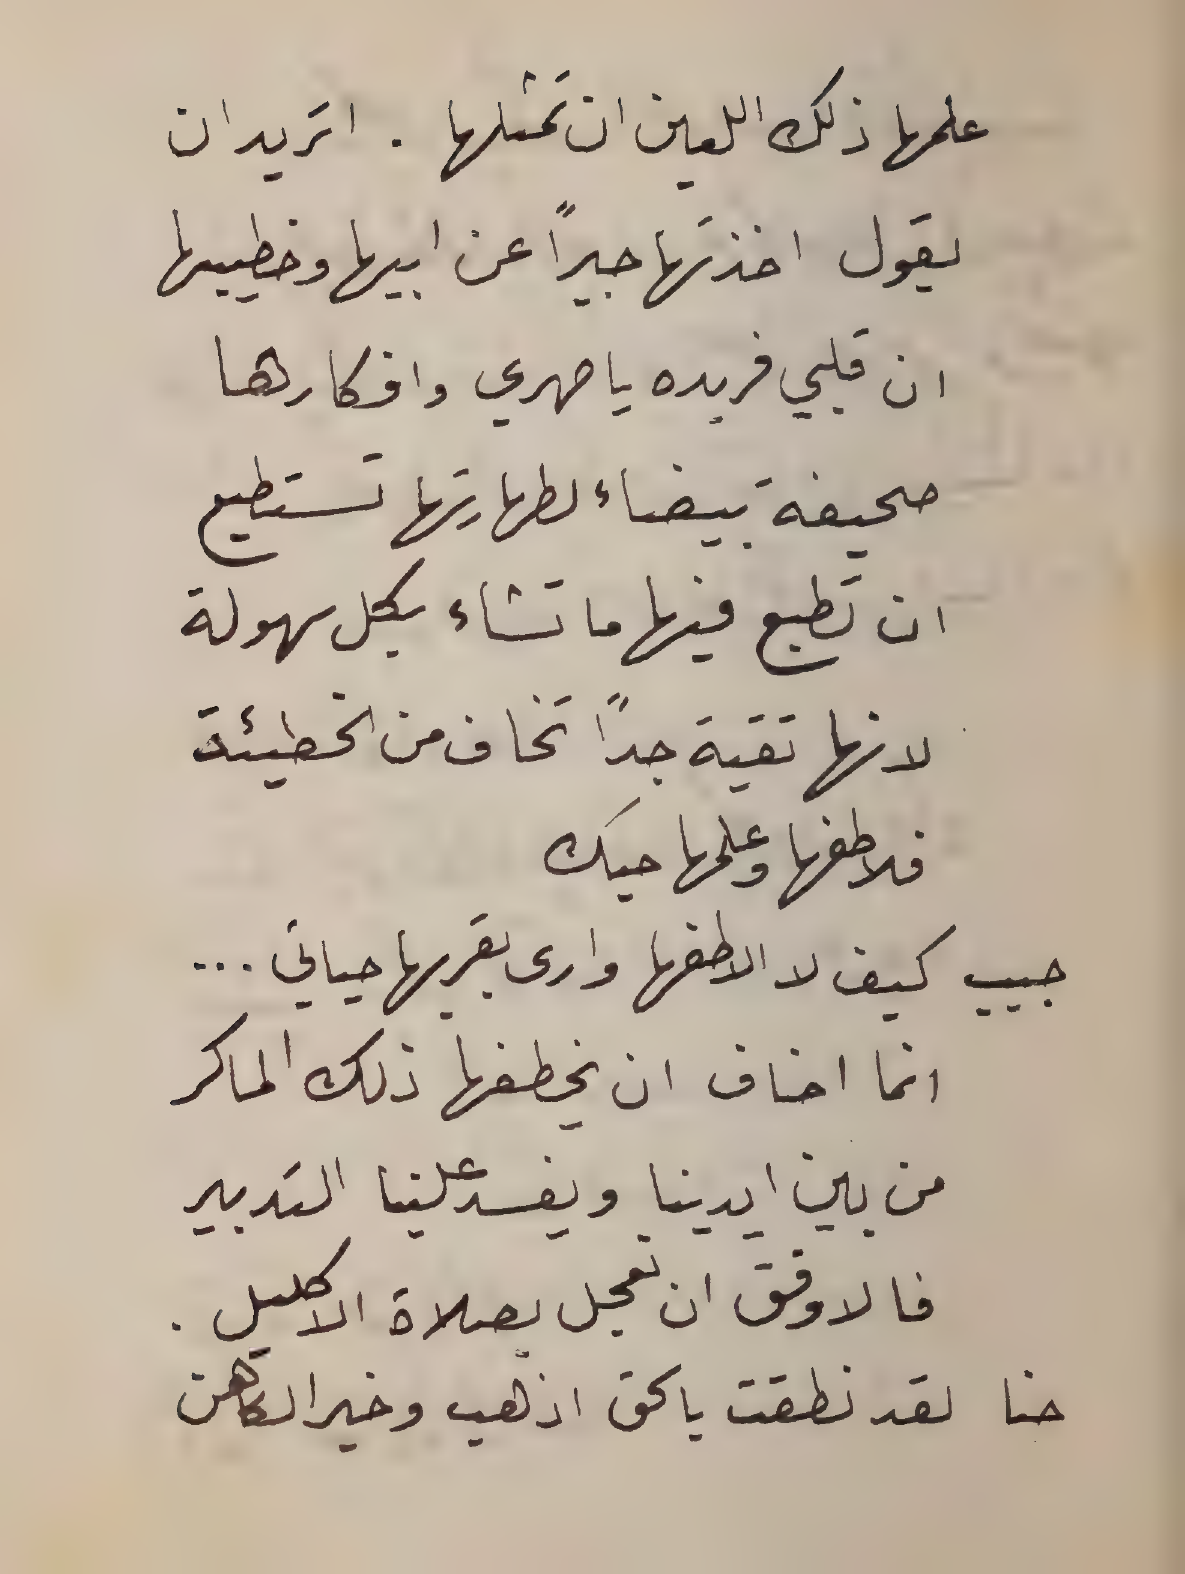 علمها ذلك اللعين ان تمثلها . اتريد ان
يقول اخذتها جبراً عن ابيها وخطيبها
ان قلبي فريده يا صهري وافكارها
صحيفة بيضاء لطهارتها تستطيع
ان تطبع فيها ما تشاء بكل سهولة
لانها تقية جداً تخاف من الخطيئة
فلاطفها وعلمها حبك
حبيب كيف لا الاطفها وارى بقربها حياتي ...
انما اخاف ان يخطفها ذلك الماكر
من بين ايدينا ويفسد علينا التدبير
فالاوفق ان نعجل بصلاة الاكليل .
حنا لقد نطقت بالحق اذهب وخبر الكاهن